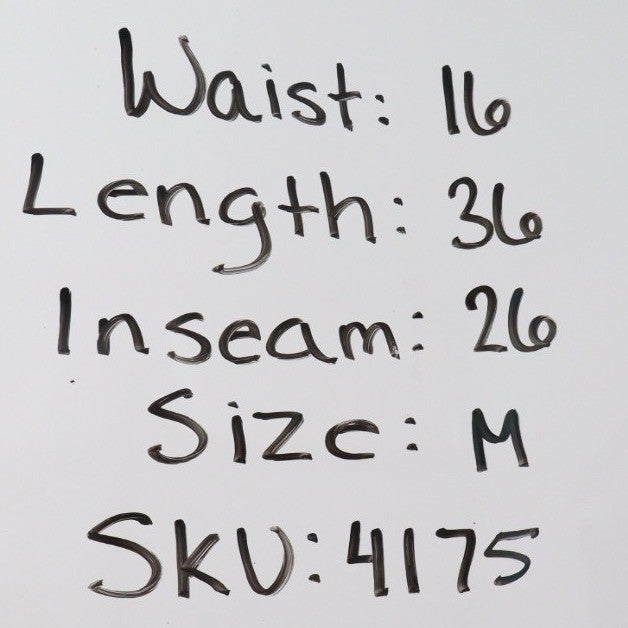 Waist: 16
Length: 36
Inseam: 26
Size: M
SKU: 4175